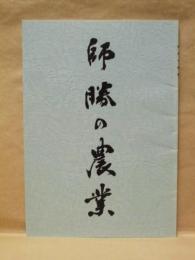 師勝の農業